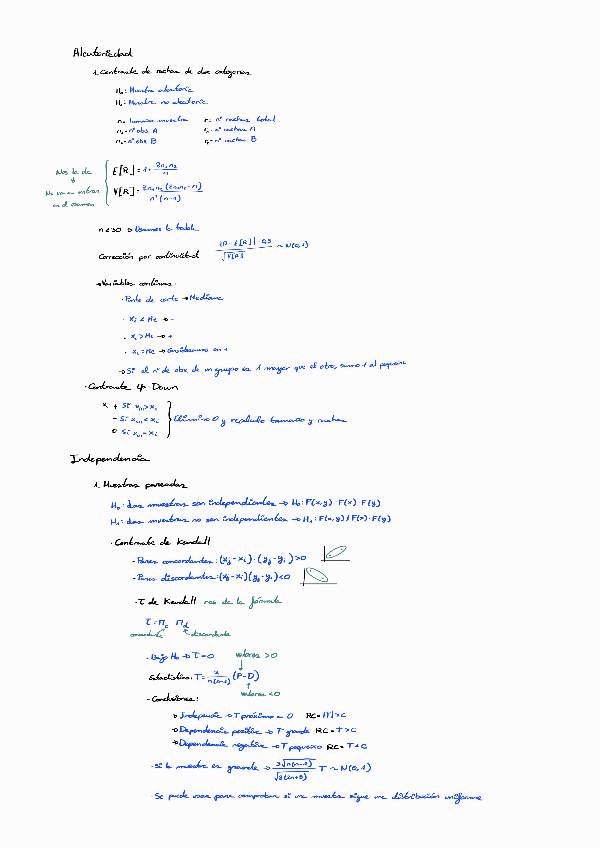 Aleatoriedad
1. Contraste de rachas de dos categorías
H₀: Muestra aleatoria
H₁: Muestra no aleatoria
n = tamaño muestra r = nº rachas total
n₁ = nº obs A r₁ = nº rachas A
n₂ = nº obs B r₂ = nº rachas B
Nos la da
No va a entrar
en el examen
E[R] = 1 + 2n₁n₂/n
V[R] = 2n₁n₂(2n₁n₂-n)/n²(n-1)
n < 30 → Usamos la tabla
Corrección por continuidad |R - E[R]| - 0,5 / √V[R] ~ N(0,1)
→ Variables continuas:
· Punto de corte → Mediana
· xᵢ < Me → -
· xᵢ > Me → +
· xᵢ = Me → Consideramos en +
→ Si el nº de obs. de un grupo es 1 mayor que el otro, sumo 1 al pequeño
· Contraste Up-Down
+ Si xᵢ₊₁ > xᵢ
- Si xᵢ₊₁ < xᵢ
0 Si xᵢ₊₁ = xᵢ
Elimino 0 y recalculo tamaños y rachas
Independencia
1. Muestras pareadas
H₀: dos muestras son independientes → H₀: F(x,y) = F(x)·F(y)
H₁: dos muestras no son independientes → H₁: F(x,y) ≠ F(x)·F(y)
· Contraste de Kendall
- Pares concordantes: (xⱼ-xᵢ)·(yⱼ-yᵢ) > 0
- Pares discordantes: (xⱼ-xᵢ)(yⱼ-yᵢ) < 0
- τ de Kendall nos da la fórmula
τ = Π_c Π_d
concordante discordante
- Bajo H₀ → τ = 0 valores > 0
Estadístico: T = 2/n(n-1) (P-D)
valores < 0
- Conclusiones:
→ Independencia → T próximo a 0 RC = |T| > C
→ Dependencia positiva → T grande RC = T > C
→ Dependencia negativa → T pequeño RC = T < C
- Si la muestra es grande → 3√n(n-1) / √2(2n+5) T ~ N(0,1)
- Se puede usar para comprobar si una muestra sigue una distribución uniforme